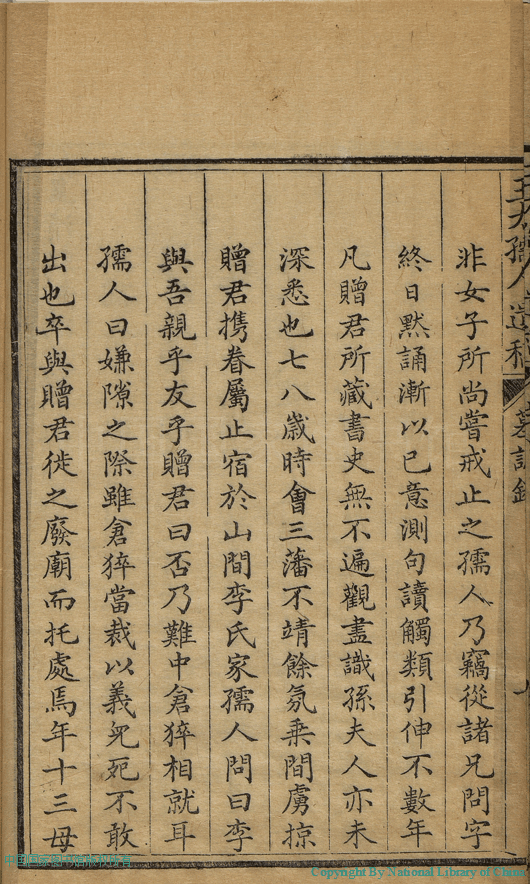 王大孺人遺稿 墓誌銘
非女子所尚嘗戒止之孺人乃竊從諸兄問字
終日默誦漸以已意測句讀觸類引伸不數年
凡贈君所藏書史無不遍觀盡識孫夫人亦未
深悉也七八歲時會三藩不靖餘氛乗間虜掠
贈君携眷屬止宿於山間李氏家孺人問曰李
與吾親乎友乎贈君曰否乃難中倉猝相就耳
孺人曰嫌隙之際雖倉猝當裁以義兒死不敢
出也卒與贈君徙之廢廟而托處焉年十三母
Copyright By National Library of China